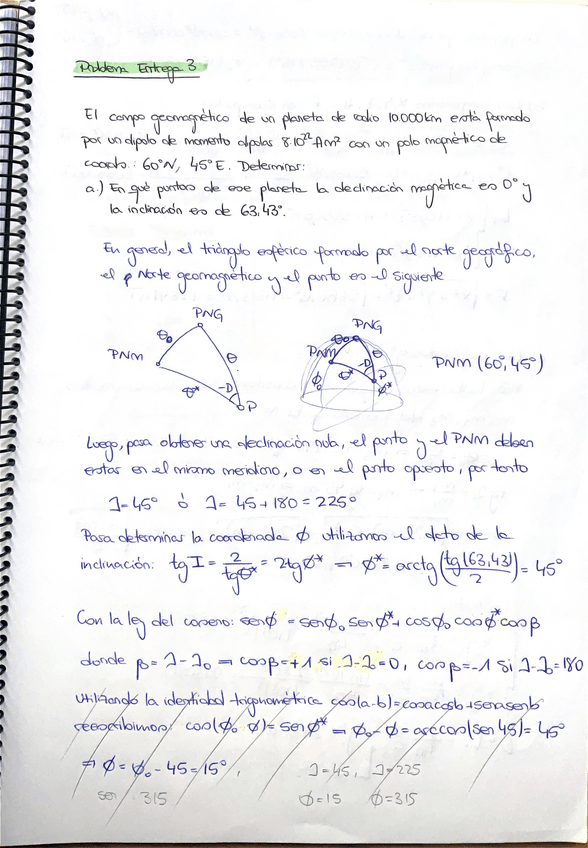 Problema Entrega 3
El campo geomagnético de un planeta de radio 10.000km está formado
por un dipolo de momento dipolar 8·10²²Am² con un polo magnético de
coords.: 60°N, 45°E. Determinar:
a.) En qué puntos de ese planeta la declinación magnética es 0° y
la inclinación es de 63.43°.
En general, el triángulo esférico formado por el norte geográfico,
el Norte geomagnético y el punto es el siguiente
PNG
θ₀
PNM
θ
θ*
-D
P
PNG
θ₀
PNM
θ
-D
ϕ₀
θ*
P
ϕ*
PNM (60°, 45°)
Luego, para obtener una declinación nula, el punto y el PNM deben
estar en el mismo meridiano, o en el punto opuesto, por tanto
λ=45° ó λ= 45+180 = 225°
Para determinar la coordenada ϕ utilizamos el dato de la
inclinación: tg I = 2/tgθ* = 2tgϕ* → ϕ* = arctg(tg(63,43)/2) = 45°
Con la ley del coseno: senϕ = senϕ₀ senϕ* + cosϕ₀ cosϕ* cosβ
donde β = λ-λ₀ → cosβ=+1 si λ-λ₀=0, cosβ=-1 si λ-λ₀=180
Utilizando la identidad trigonométrica cos(a-b)=cosacosb+senasenb
reescribimos: cos(ϕ₀ ϕ)=senϕ* → ϕ₀-ϕ=arccos(sen45)= 45°
→ ϕ = ϕ₀ - 45 = 15°,
λ=45, λ=225
sen 315
ϕ=15 ϕ=315